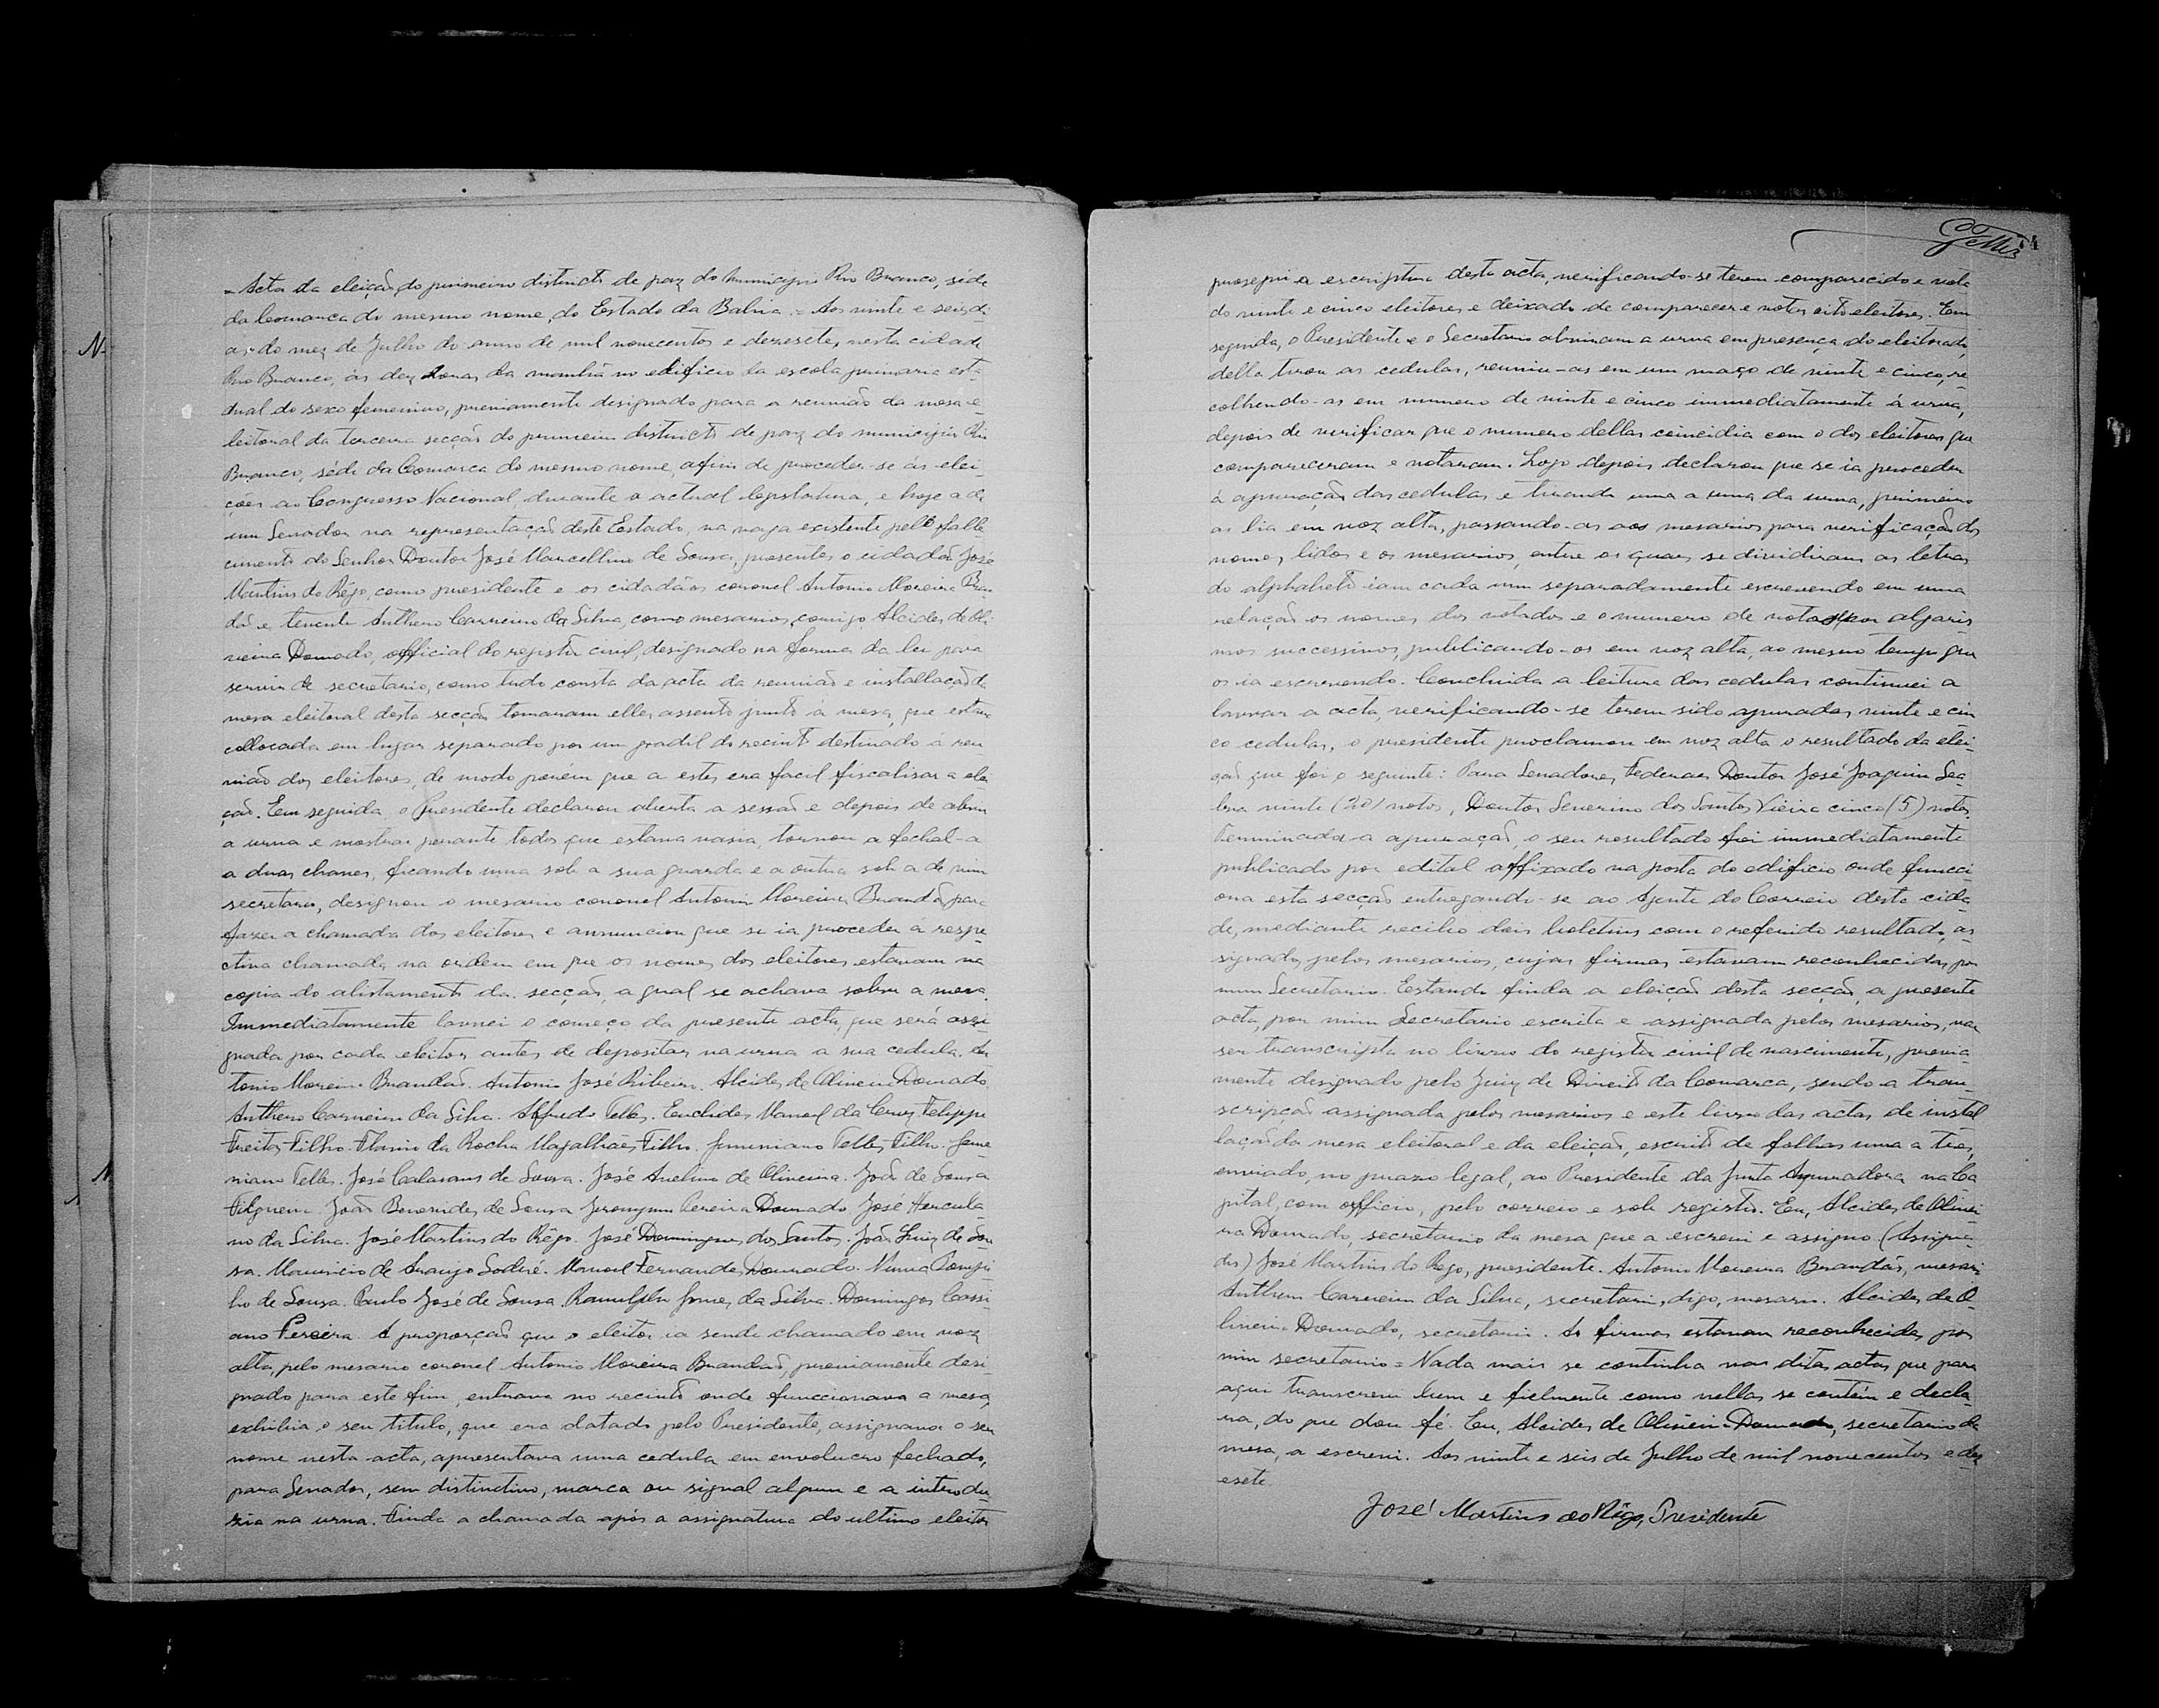 = Acta da eleição do primeiro districto de paz do Municipio Rio Branco, séde
da Comarca do mesmo nome, do Estado da Bahia. = Aos vinte e seis di-
as do mez de Julho do anno de mil novecentos e dezesete, nesta cidade
Rio Branco, ás dez horas da manhã no edificio da escola primaria esta-
dual do sexo femenino, previamente designado para a reunião da mesa e-
leitoral da terceira secção do primeiro districto de paz do municipio Rio
Branco, séde da Comarca do mesmo nome, afim de proceder-se ás elei-
ções ao Congresso Nacional durante a actual legislatura, e hoje a de
um Senador na representação deste Estado, na vaga existente pelo falle-
cimento do Senhor Doutor José Marcellino de Sousa, presentes o cidadão José
Martins do Rêgo, como presidente e os cidadãos coronel Antonio Moreira Bran
dão e tenente Anthero Carneiro da Silva, como mesarios, comigo Alcides de Oli
veira Dourado, official do registro civil, designado na forma da lei para
servir de secretario, como tudo consta da acta da reunião e installação da
mesa eleitoral desta secção tomaram elles assento junto a mesa, que estava
collocada em lugar separado por um gradil do recinto destinado á reu
nião dos eleitores, de modo porém que a estes era facil fiscalisar a elei
ção. Em seguida o Presidente declarou aberta a sessão e depois de abrir
a urna e mostrar perante todos que estava vasia, tornou a fechal-a
a duas chaves, ficando uma sob a sua guarda e a outra sob a de mim
secretario, designou o mesario coronel Antonio Moreira Brandão para
fazer a chamada dos eleitores e annunciou que se ia proceder á respe-
ctiva chamada na ordem em que os nomes dos eleitores estavam na
copia do alistamento da secção, a qual se achava sobre a mesa.
Immediatamente lavrei o começo da presente acta, que será assi-
gnada por cada eleitor antes de depositar na urna a sua cedula. An
tonio Moreira Brandão. Antonio José Ribeiro. Alcides de Oliveira Dourado.
Anthero Carneiro da Silva. Alfredo Telles. Euclides Manoel da Cruz. Felippe
Freitas Filho. Flavio da Rocha Magalhães Filho. Jeminiano Telles Filho. Jemi
niano Telles. José Calasans de Sousa. José Avelino de Oliveira. João de Sousa
Filgueira. João Benevides de Sousa. Jeronymo Pereira Dourado. José Hercula
no da Silva. José Martins do Rêgo. José Domingues dos Santos. João Luiz de Sou
sa. Mauricio de Araujo Sodré. Manoel Fernandes Dourado. Numa Pompi
lio de Sousa. Paulo José de Sousa. Ramulpho Gomes da Silva. Domingos Cassi-
ano Pereira. A proporção que o eleitor ia sendo chamado em voz
alta, pelo mesario coronel Antonio Moreira Brandão, previamente desi
gnado para este fim, entrava no recinto onde funccionava a mesa,
exhibia o seu titulo, que era datado pelo Presidente, assignava o seu
nome nesta acta, apresentava uma cedula em envolucro fechado,
para Senador, sem distinctivo, marca ou signal algum e a introdu-
zia na urna. Finda a chamada após a assignatura do ultimo eleitor
Telles 74
prosegui a escriptura desta acta, verificando-se terem comparecido e vota
do vinte e cinco eleitores e deixado de comparecer e votar oito eleitores. Em
seguida, o Presidente e o Secretario abriram a urna em presença do eleitorado,
della tirou as cedulas, reuniu-as em um maço de vinte e cinco, re-
colhendo-as em numero de vinte e cinco immediatamente á urna,
depois de verificar que o numero dellas coincidia com o dos eleitores que
compareceram e votaram. Logo depois declarou que se ia proceder
á apuração das cedulas e tirando uma a uma da urna, primeiro
as lia em voz alta, passando-as aos mesarios para verificação dos
nomes lidos e os mesarios, entre os quaes se dividiram as letras
do alphabeto iam cada um separadamente escrevendo em uma
relação os nomes dos votados e o numero de votos por algaris
mos successivos, publicando-os em voz alta, ao mesmo tempo que
os ia escrevendo. Concluida a leitura das cedulas continuei a
lavrar a acta, verificando-se terem sido apuradas vinte e cin
co cedulas, o presidente proclamou em voz alta o resultado da elei-
ção que foi o seguinte: Para Senadores Federaes Doutor José Joaquim Sea
bra vinte (20) votos, Doutor Severino dos Santos Vieira cinco (5) votos.
Terminada a apuração, o seu resultado foi immediatamente
publicado por edital affixado na porta do edificio onde funcci-
ona esta secção entregando-se ao Agente do Correio desta cida-
de, mediante recibo dois boletins com o referido resultado, as-
signados pelos mesarios, cujas firmas estavam reconhecidas por
mim Secretario. Estando finda a eleição desta secção, a presente
acta, por mim Secretario escrita e assignada pelos mesarios, vae
ser transcripta no livro do registro civil de nascimento, previa-
mente designado pelo Juiz de Direito da Comarca, sendo a tran-
scripção assignada pelos mesarios e este livro das actas de instal
lação da mesa eleitoral e da eleição, escrito de folhas uma a tres,
enviado, no prazo legal, ao Presidente da Junta Apuradora na Ca
pital, com officio, pelo correio e sob registro. Eu, Alcides de Olivei-
ra Dourado, secretario da mesa que a escrevi e assigno. (Assigna-
dos) José Martins do Rego, presidente. Antonio Moreira Brandão, mesario
Anthero Carneiro da Silva, secretario, digo, mesario. Alcides de O-
liveira Dourado, secretario. As firmas estavam reconhecidas por
mim secretario = Nada mais se continha nas ditas actas que para
aqui transcrevi bem e fielmente como nellas se contém e decla
ra, do que dou fé. Eu, Alcides de Oliveira Dourado, secretario da
mesa, a escrevi. Aos vinte e seis de Julho de mil novecentos e dez
esete.
José Martins do Rêgo, Presidente